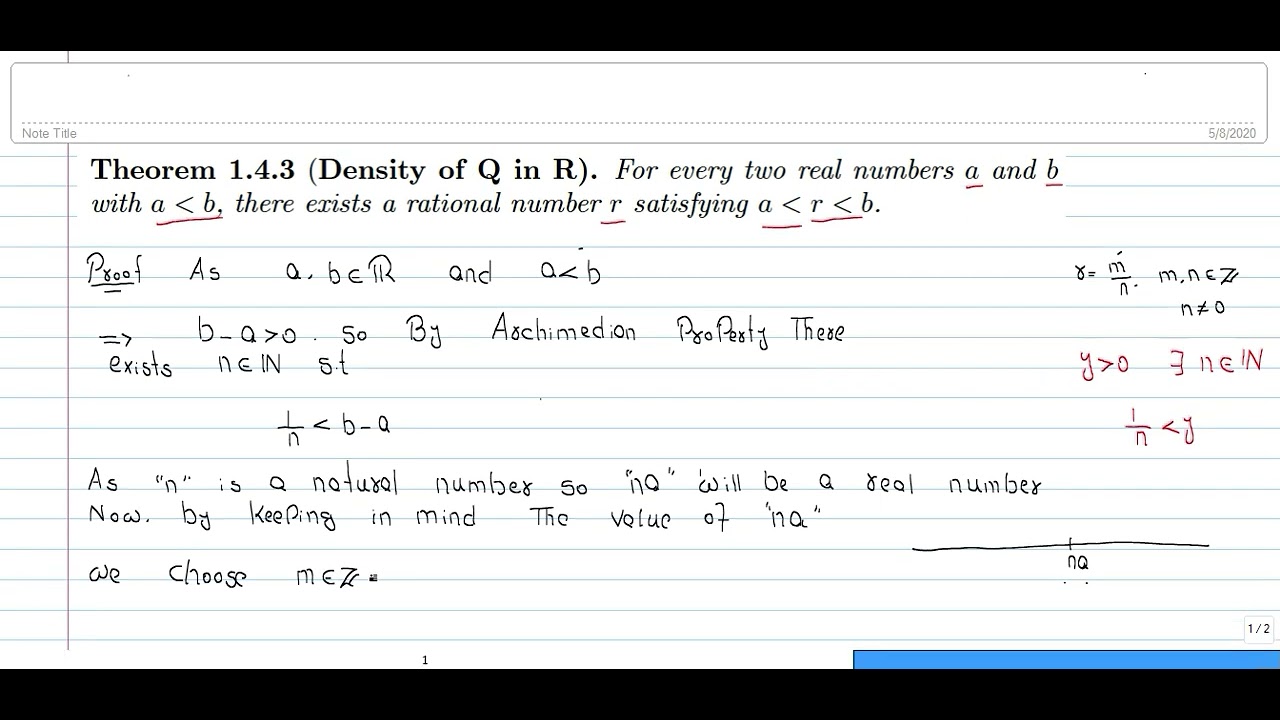 Note Title
5/8/2020
Theorem 1.4.3 (Density of Q in R). For every two real numbers a and b
with a < b, there exists a rational number r satisfying a < r < b.
Proof As a, b ∈ ℝ and a < b
r = m/n. m, n ∈ ℤ
n ≠ 0
⇒ b - a > 0. So By Archimedion Property There
exists n ∈ ℕ s.t
y > 0 ∃ n ∈ ℕ
1/n < b - a
1/n < y
As "n" is a natural number so "na" will be a real number
Now. by keeping in mind The value of "na"
na
we choose m ∈ ℤ
1 / 2
1